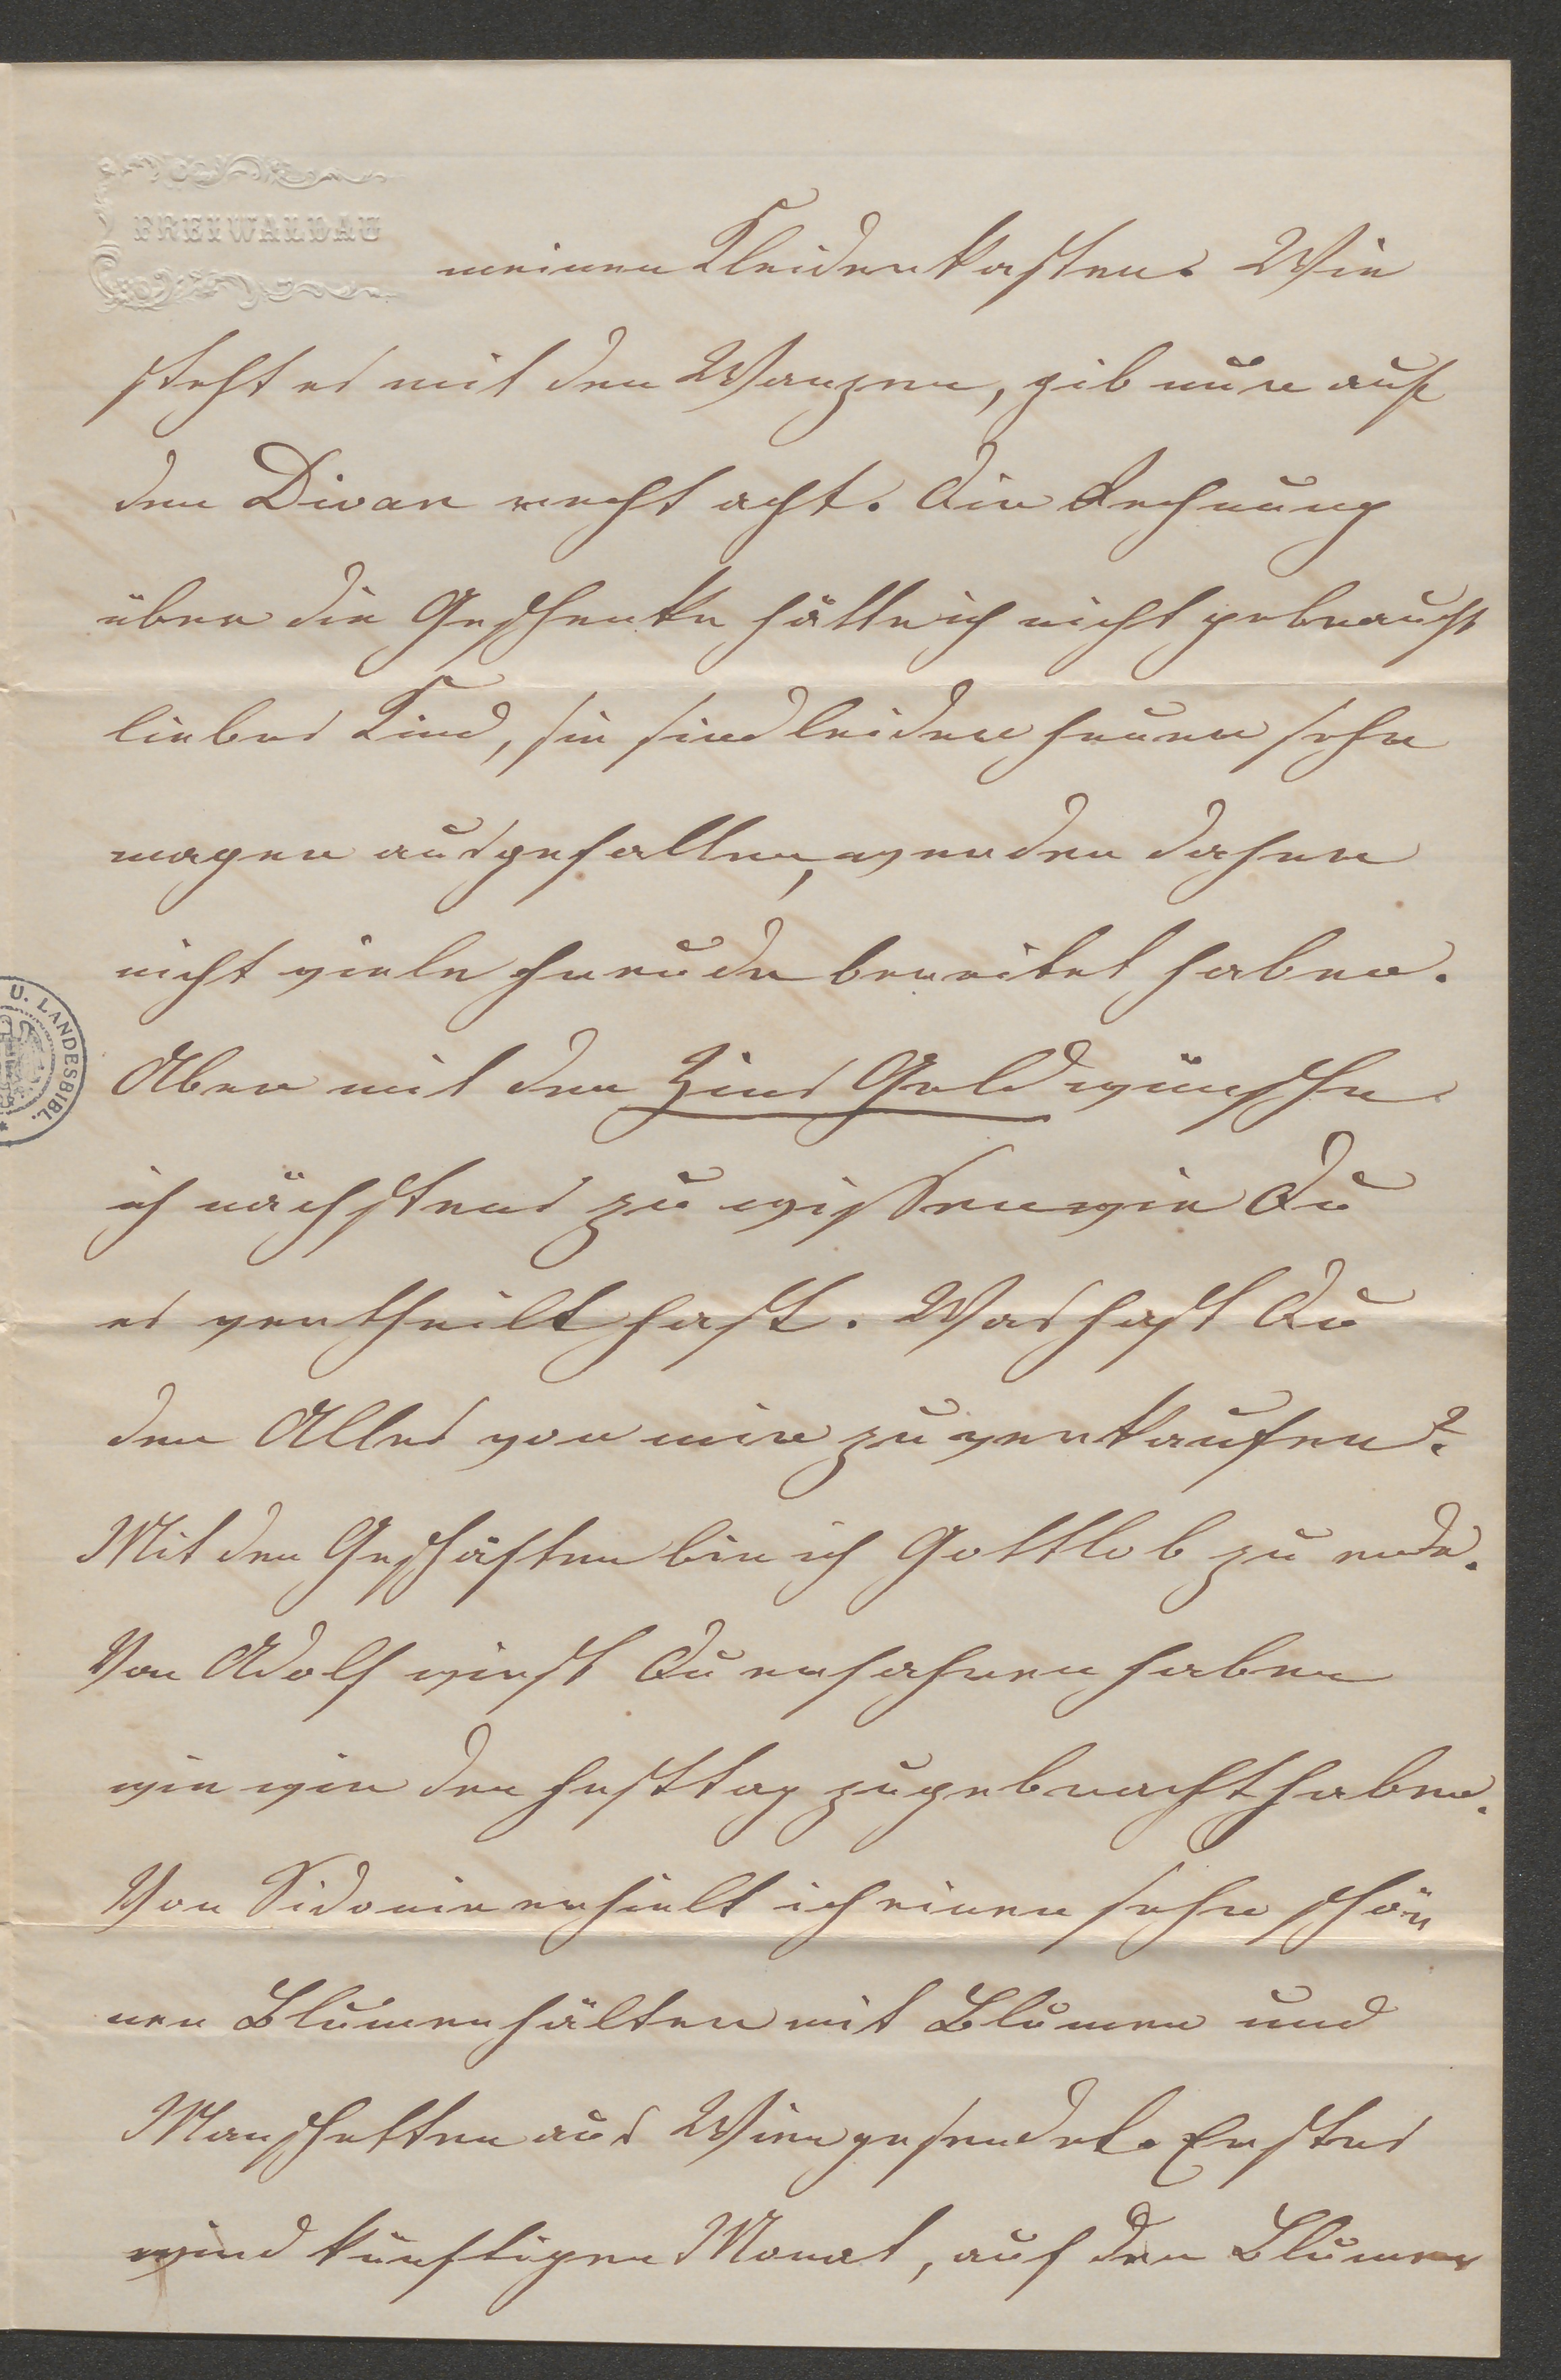 FREIWALDAU
meinen Kleiderkasten. Wie
steht es mit den Wanzen, gib nur auf
den Divan recht acht. Die Rechnung
über die Geschenke hätte ich nicht gebraucht
liebes Kind, sie sind leider heuer sehr
mager ausgefallen, werden daher
nicht viele Freude bereitet haben.
Aber mit den Zins Geld wünsche
ich nächstens zu wissen wie Du
es vertheilt hast. Was hast Du
den Alles von mir zu verkaufen?
Mit den Geschäften bin ich Gottlob zu ende.
Von Adolf wirst Du erfahren haben
wie wir den Festtag zugebracht haben.
Von Sidonie erhielt ich einen sehr schön
nen Blumenhälter mit Blumen und
Manschetten aus Wien gesendet. Erstes
wird künftigen Monat, auf den Blumen
U. LANDESBIBL. *